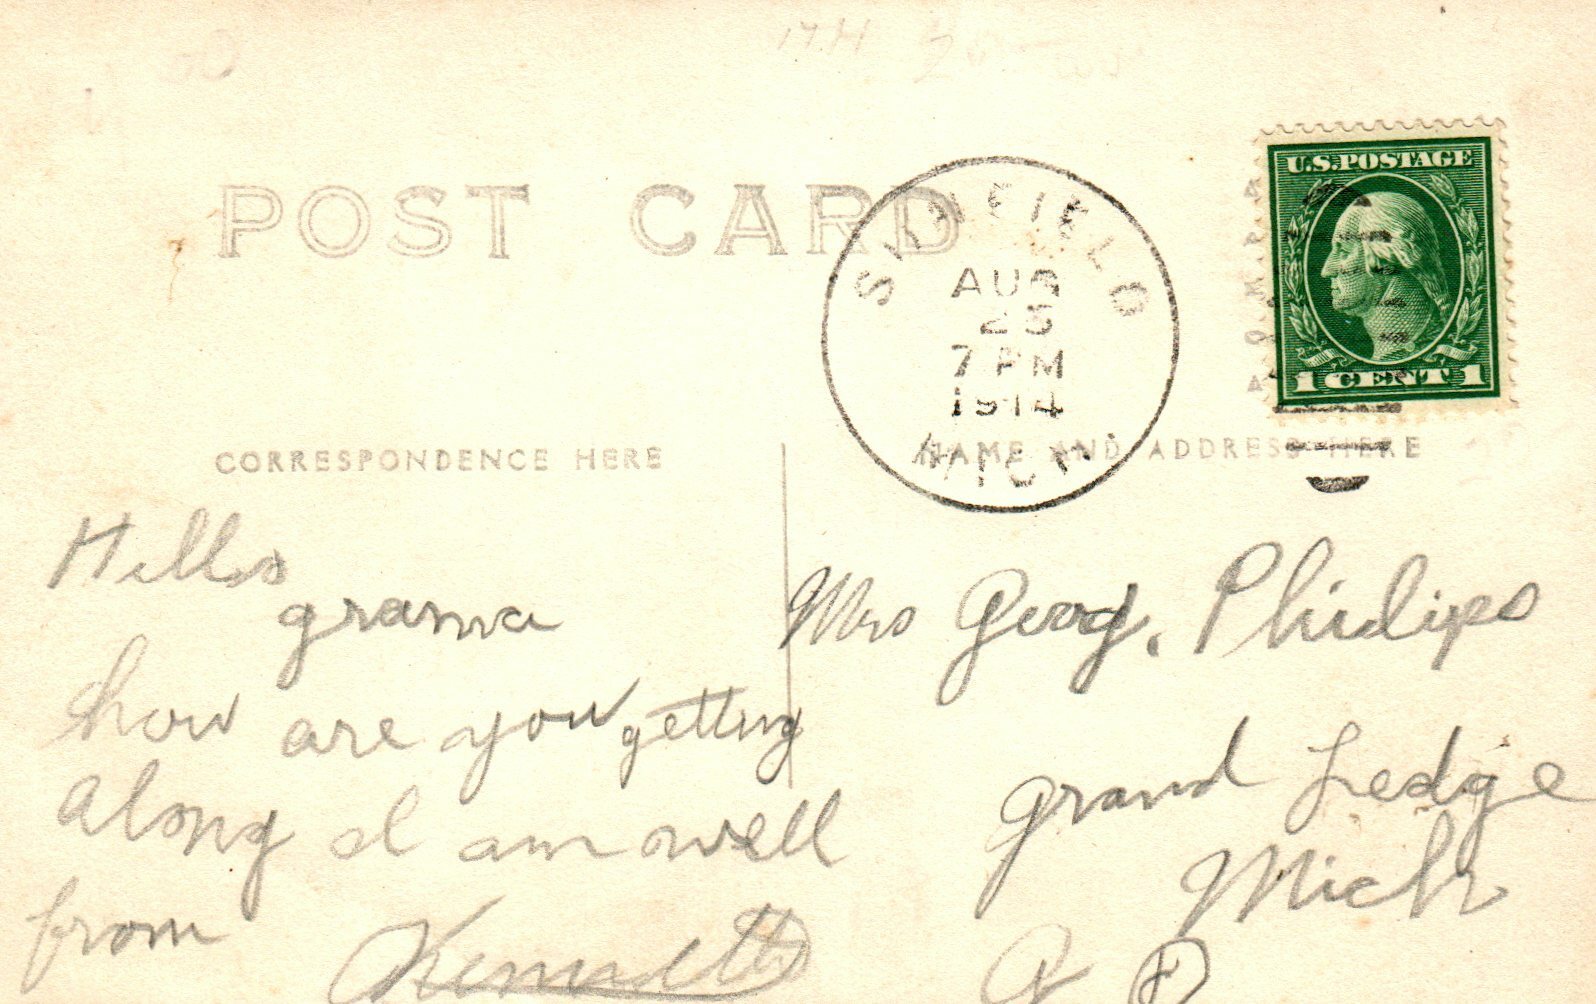 POST CARD
SUNFIELD
AUG
25
7 PM
1914
MICH.
U.S. POSTAGE
1 CENT 1
CORRESPONDENCE HERE
NAME AND ADDRESS HERE
Hello
grama
how are you getting
along I am well
from
Mrs Geog. Philips
Grand Ledge
Mich